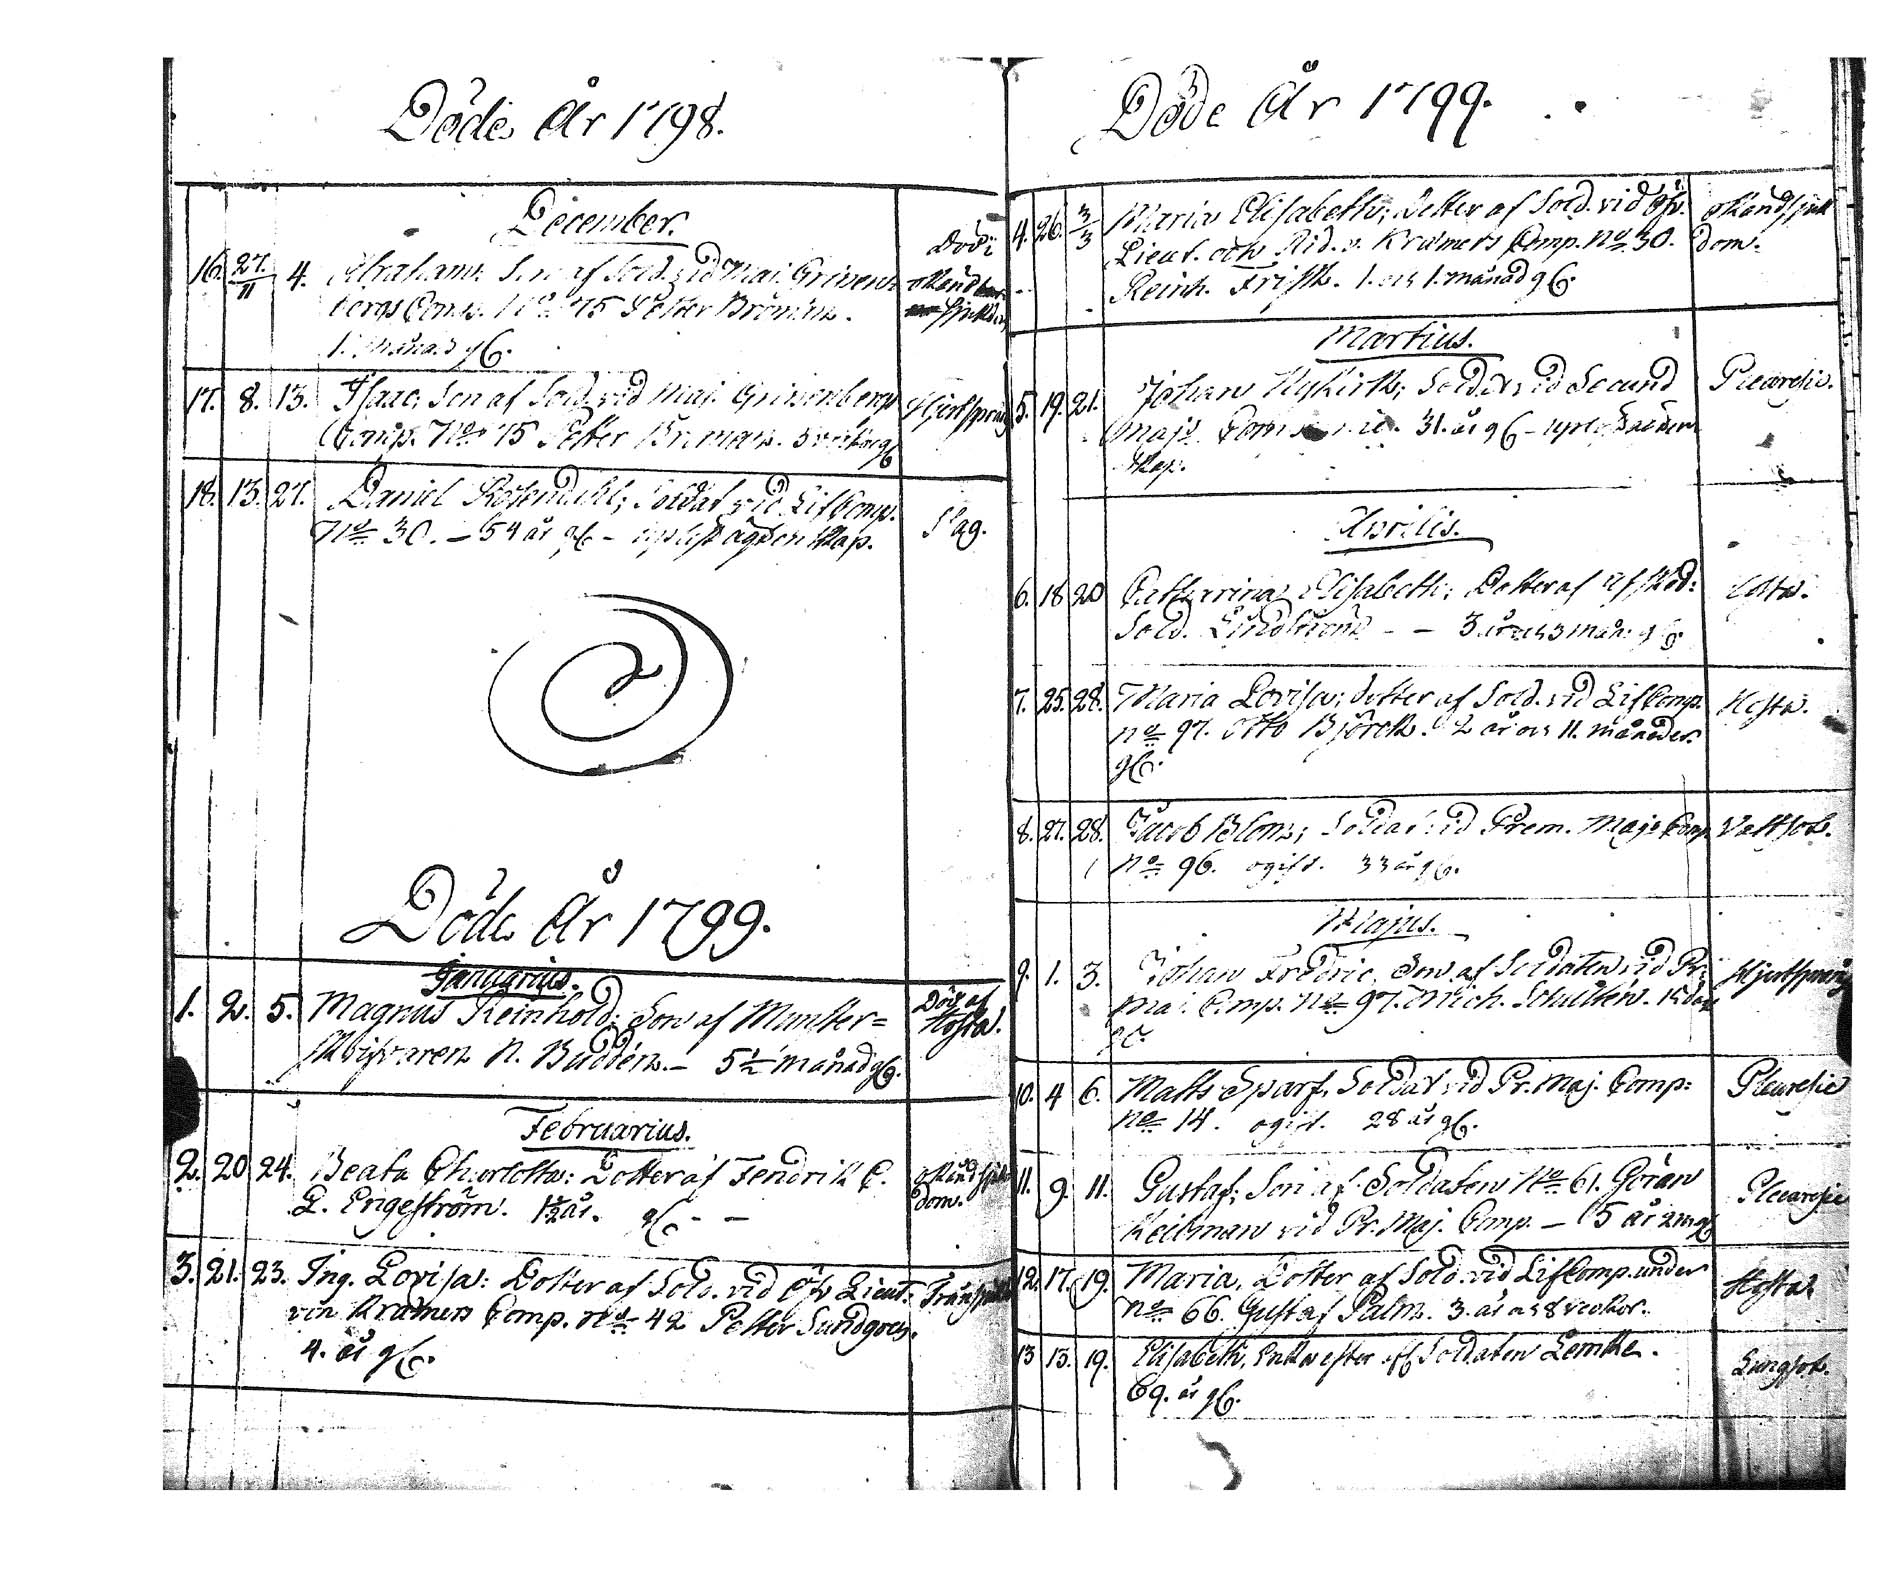 Döde År 1798.
December.
16. 27/11 4. Abraham: Son af Sold. vid Maj. Grivenbergs Comp. No 75 Petter Broman.
1. månad gl.
Död i okänd sjukdom
17. 8. 13. Isaac, Son af Sold. vid Maj. Grivenbergs
Comp. No 75 Petter Broman.
Hjertsprång
18. 13. 27. Daniel Rosendahl; Soldat vid LifComp.
No 30. – 54 år gl – uplöst ägtenskap.
Slag.
Döde År 1799.
Januarius.
1. 2. 5. Magnus Reinhold; Son af Munster=
skrifvaren N. Buddén. – 5 1/2 månad gl.
Död af Hosta.
Februarius.
2. 20 24. Beata Charlotta: Dotter af Fendrik C.
G. Engeström. 1 1/2 år. gl. – –
okänd sjukdom.
3. 21. 23. Ing. Lovisa: Dotter af Sold. vid Öfv Lieut:
von Kræmers Comp. No 42 Petter Sundgren.
4. år gl.
Döde År 1799.
4. 26. 3/3 Maria Elisabeth; dotter af Sold. vid Öfv.
Lieut. och Rid. v. Kræmers Comp. No 30.
Reinh. Frisk. 1. och 1. månad gl.
okänd sjukdom.
Martius.
5. 19. 21. Johan Nykirk; Soldat vid Secund
Majs. Comp. 31. år gl – uplöst ägtenskap.
Pleuresie.
Aprilis.
6. 18 20 Catharina Elisabeth; Dotter af afsked:
Sold. Lindström – – 3 år och 3 mån: gl.
Hosta.
7. 25. 28. Maria Lovisa; dotter af Sold. vid LifComp.
No 97. Otto Björck. 2 år och 11. månader.
gl.
Hosta.
8. 27. 28. Jacob Blom; Soldat vid Prem. Majs Comp.
No 96. ogift. 33 år gl.
Vattsot.
Majus.
9. 1. 3. Johan Fredric, Son af Soldaten vid Pr.
Maj. Comp. No 97. Mich. Schultén.
gl.
Hjertsprång
10. 4 6. Matts Sparf, Soldat vid Pr. Maj. Comp:
No 14. ogift. 28 år gl.
Pleuresie
11. 9. 11. Gustaf; Son af Soldaten No 61. Göran
Keilman vid Pr. Maj. Comp. – 5 år
Pleuresie
12. 17. 19. Maria, Dotter af Sold. vid LifComp. under
No 66. Gustaf Palm. 3. år och 8 veckor.
Hosta
13 13. 19. Elisabeth, Enka efter afl Soldaten Lemke.
69. år gl.
Lungsot.